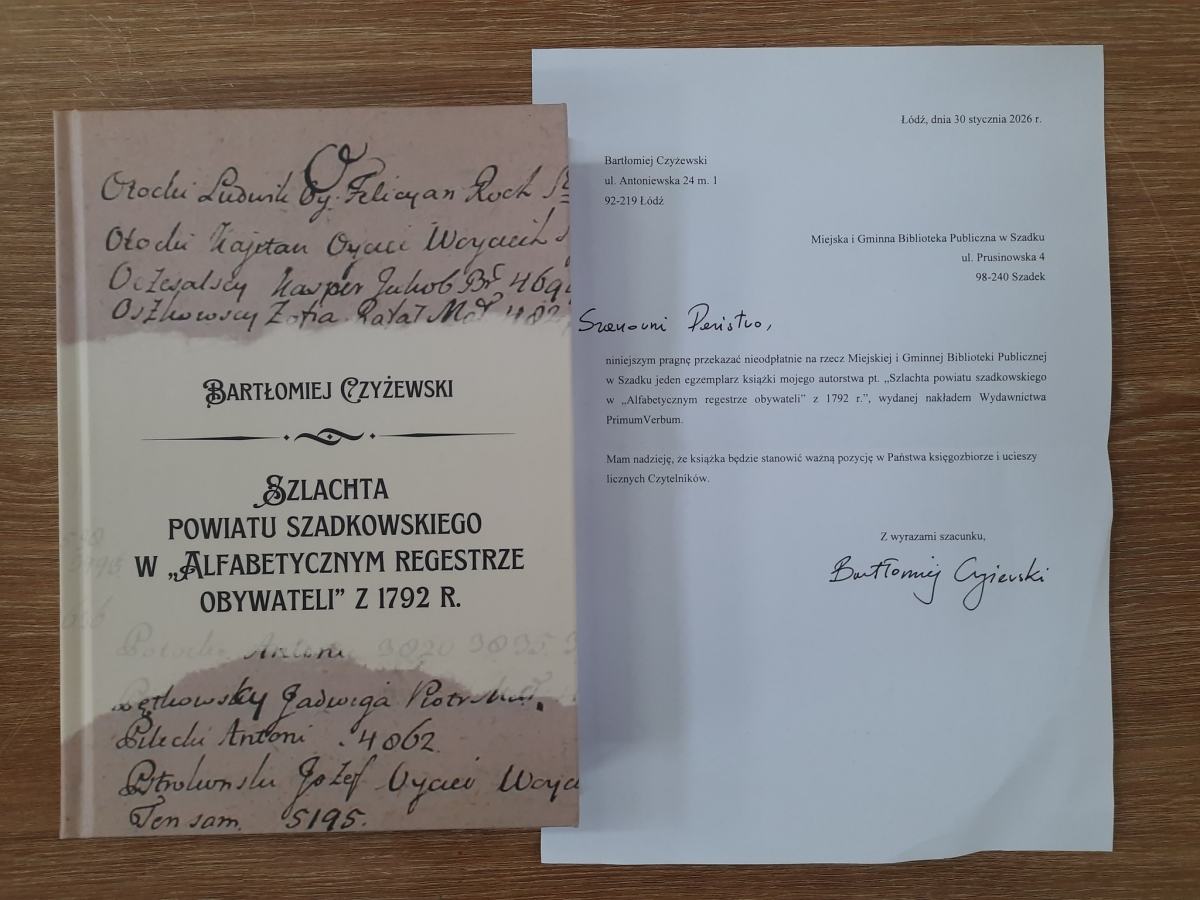 O
Otocki Ludwik Oy. Felicyan Roch
Otocki Kajetan Oycieć Woyciech
Oczesalscy Kasper Jakob Br 469
Oszkowscy Zofia Rafał Mał 482
BARTŁOMIEJ CZYŻEWSKI
SZLACHTA
POWIATU SZADKOWSKIEGO
W „ALFABETYCZNYM REGESTRZE
OBYWATELI” Z 1792 R.
Potocki Antoni 3020 3035
Antoni
Piotr Mał.
Jadwiga
Pilecki Antoni . 4062
Józef Oycieć Woyc
Ten sam. 5195.
Łódź, dnia 30 stycznia 2026 r.
Bartłomiej Czyżewski
ul. Antoniewska 24 m. 1
92-219 Łódź
Miejska i Gminna Biblioteka Publiczna w Szadku
ul. Prusinowska 4
98-240 Szadek
Szanowni Państwo,
niniejszym pragnę przekazać nieodpłatnie na rzecz Miejskiej i Gminnej Biblioteki Publicznej
w Szadku jeden egzemplarz książki mojego autorstwa pt. „Szlachta powiatu szadkowskiego
w „Alfabetycznym regestrze obywateli” z 1792 r.”, wydanej nakładem Wydawnictwa
PrimumVerbum.
Mam nadzieję, że książka będzie stanowić ważną pozycję w Państwa księgozbiorze i ucieszy
licznych Czytelników.
Z wyrazami szacunku,
Bartłomiej Czyżewski